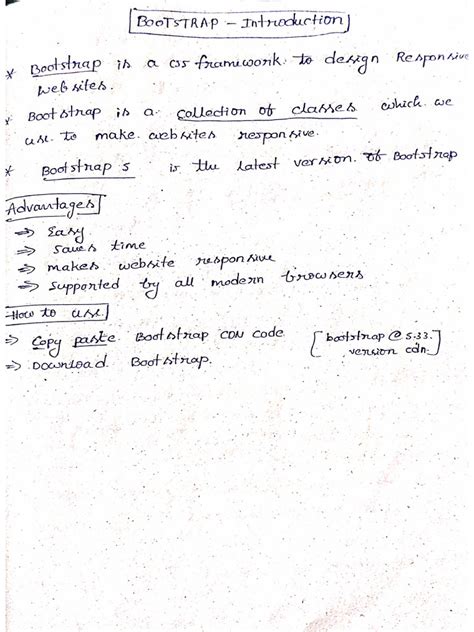 BOOTSTRAP - Introduction
* Bootstrap is a css framework to design Responsive
websites.
* Bootstrap is a collection of classes which we
use to make websites responsive.
* Bootstrap 5 is the latest version of Bootstrap
Advantages
⇒ Easy
⇒ Saves time
⇒ makes website responsive
⇒ Supported by all modern browsers
How to use
⇒ Copy paste Bootstrap CDN code [bootstrap @ 5.33.]
version cdn.
⇒ Download Bootstrap.